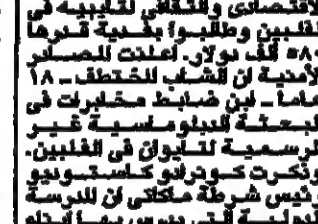 الاقتصادى والثقافى لتايبيه فى
الفلبين وطلبوا بفدية قدرها
٥٨٠ ألف دولار. أعلنت المصادر
الأمنية ان الشاب المختطف ـ ١٨
عاما ـ ابن ضابط مخابرات فى
البعثة الدبلوماسية غير
الرسمية لتايوان فى الفلبين.
وذكرت كودرادو كاستونيو
رئيس شرطة ماكاتى أن المدرسة
الدولية التى يدرس بها